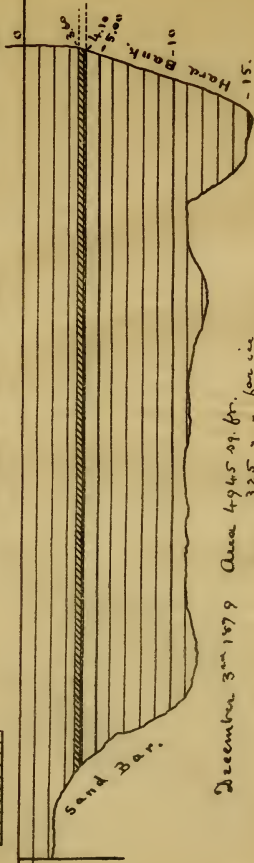 0
3.60
4.10
-5.00
-10
-15.
Hard Bank.
Sand Bar.
December 3rd 1879 Area 4945 sq. ft.
325